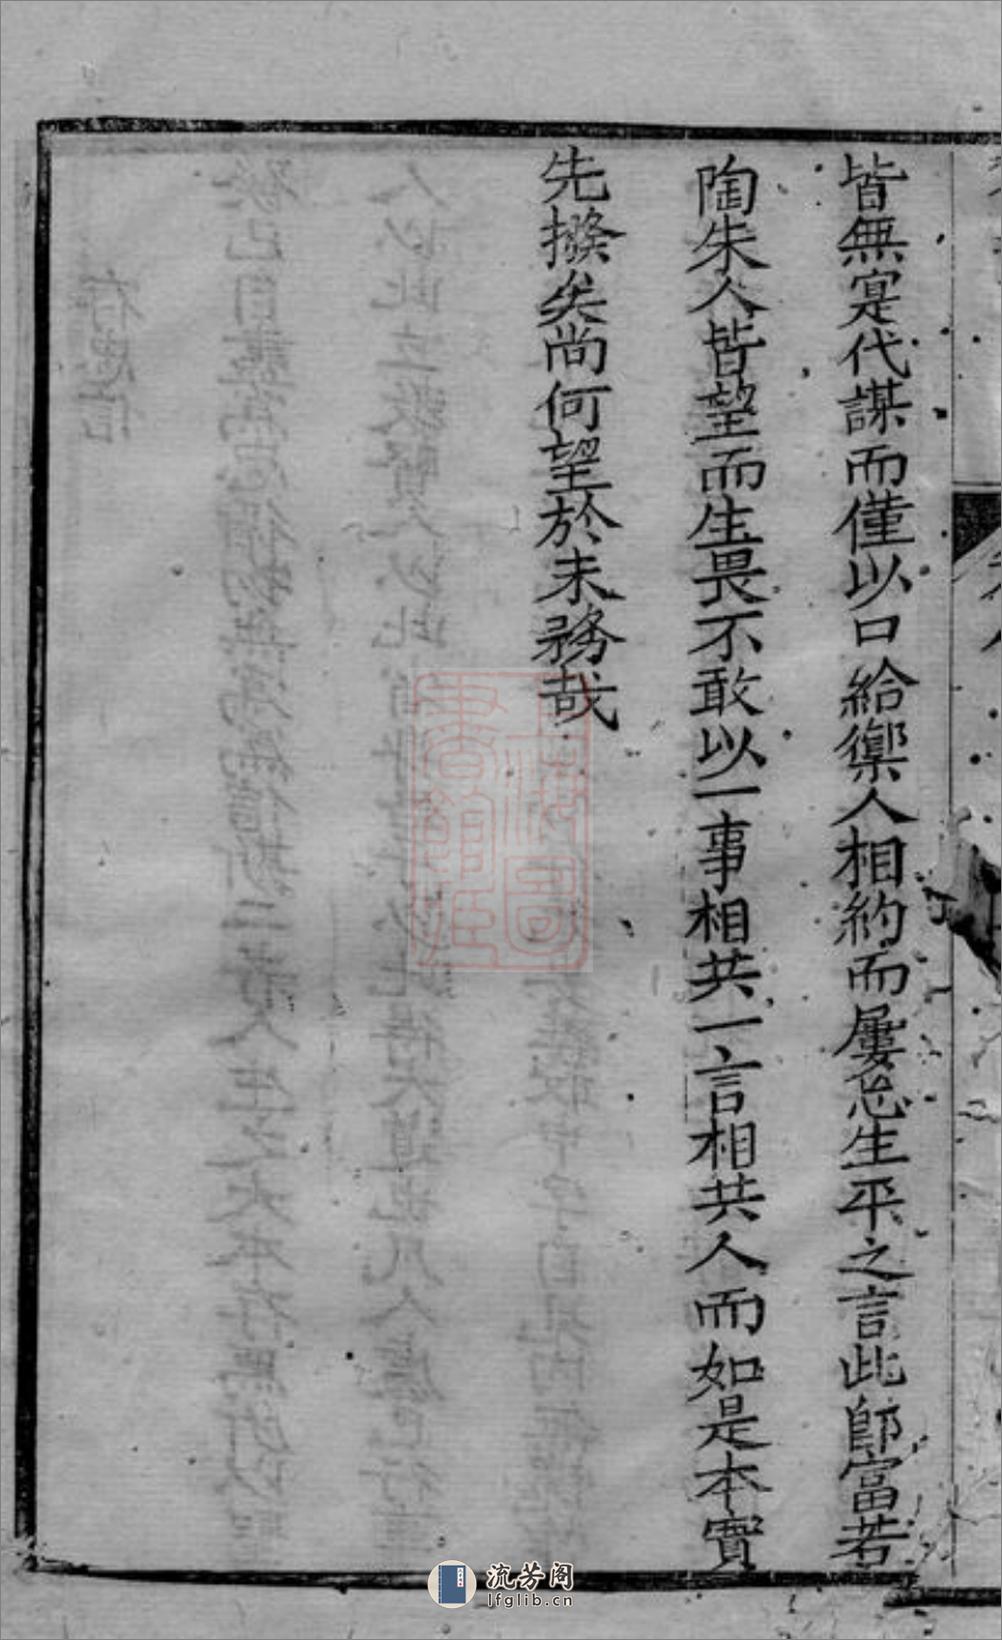 皆無寔代謀而僅以口給禦人相約而屢忘生平之言此即富若
陶朱人皆望而生畏不敢以一事相共一言相共人而如是本實
先撥矣尚何望於末務哉
流芳阁
lfglib.cn